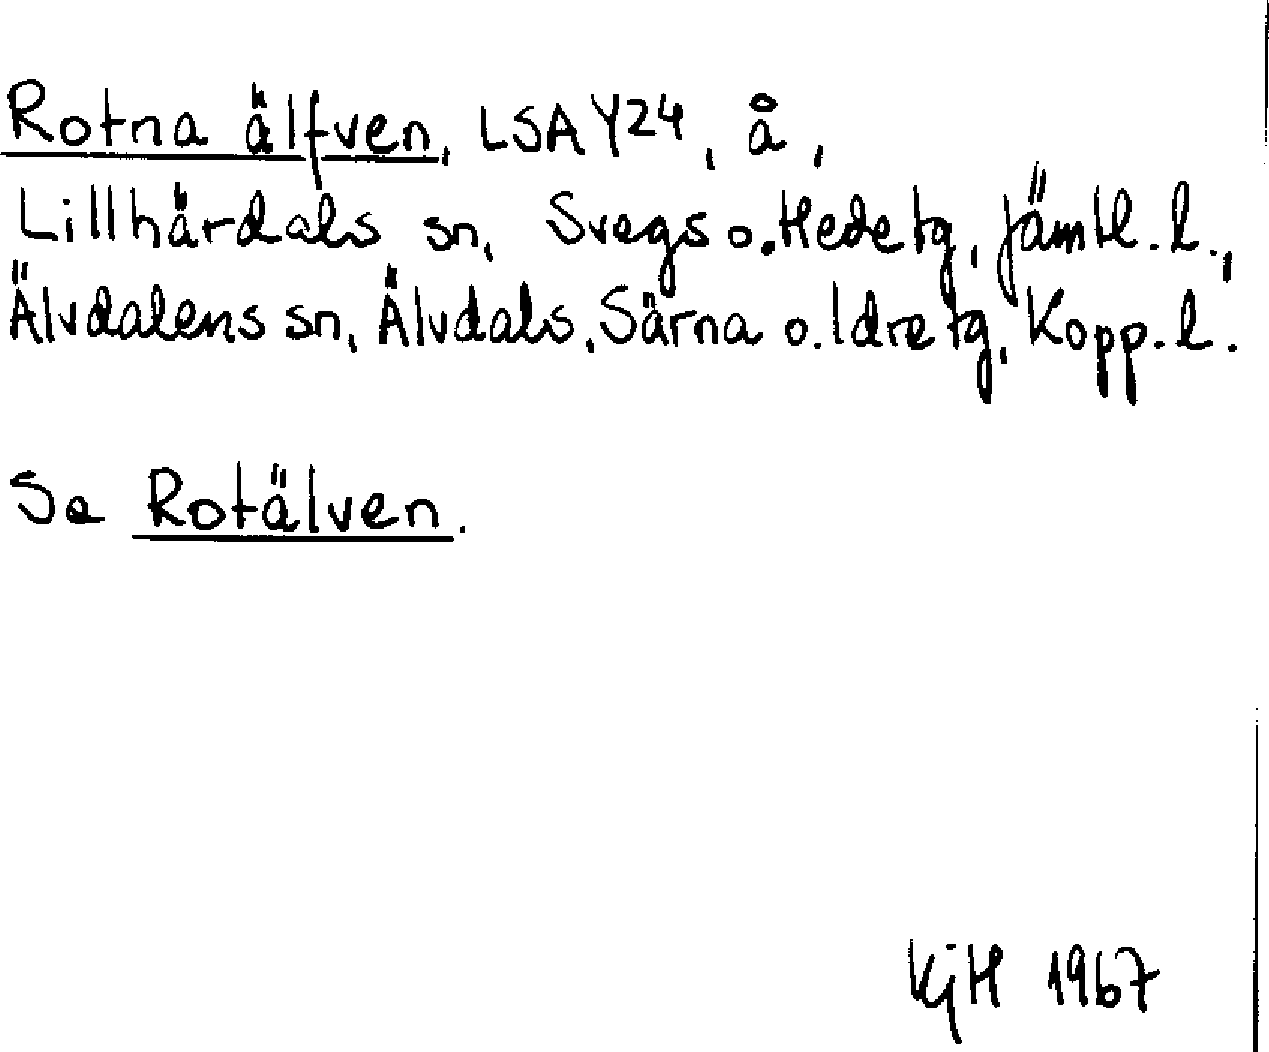 Rotna älfven, LSA Y24, å,
Lillhärdals sn, Svegs o. Hede tg, Jämtl. l.,
Älvdalens sn, Älvdals, Särna o. Idre tg, Kopp. l.
Se Rotälven.
KjH 1967